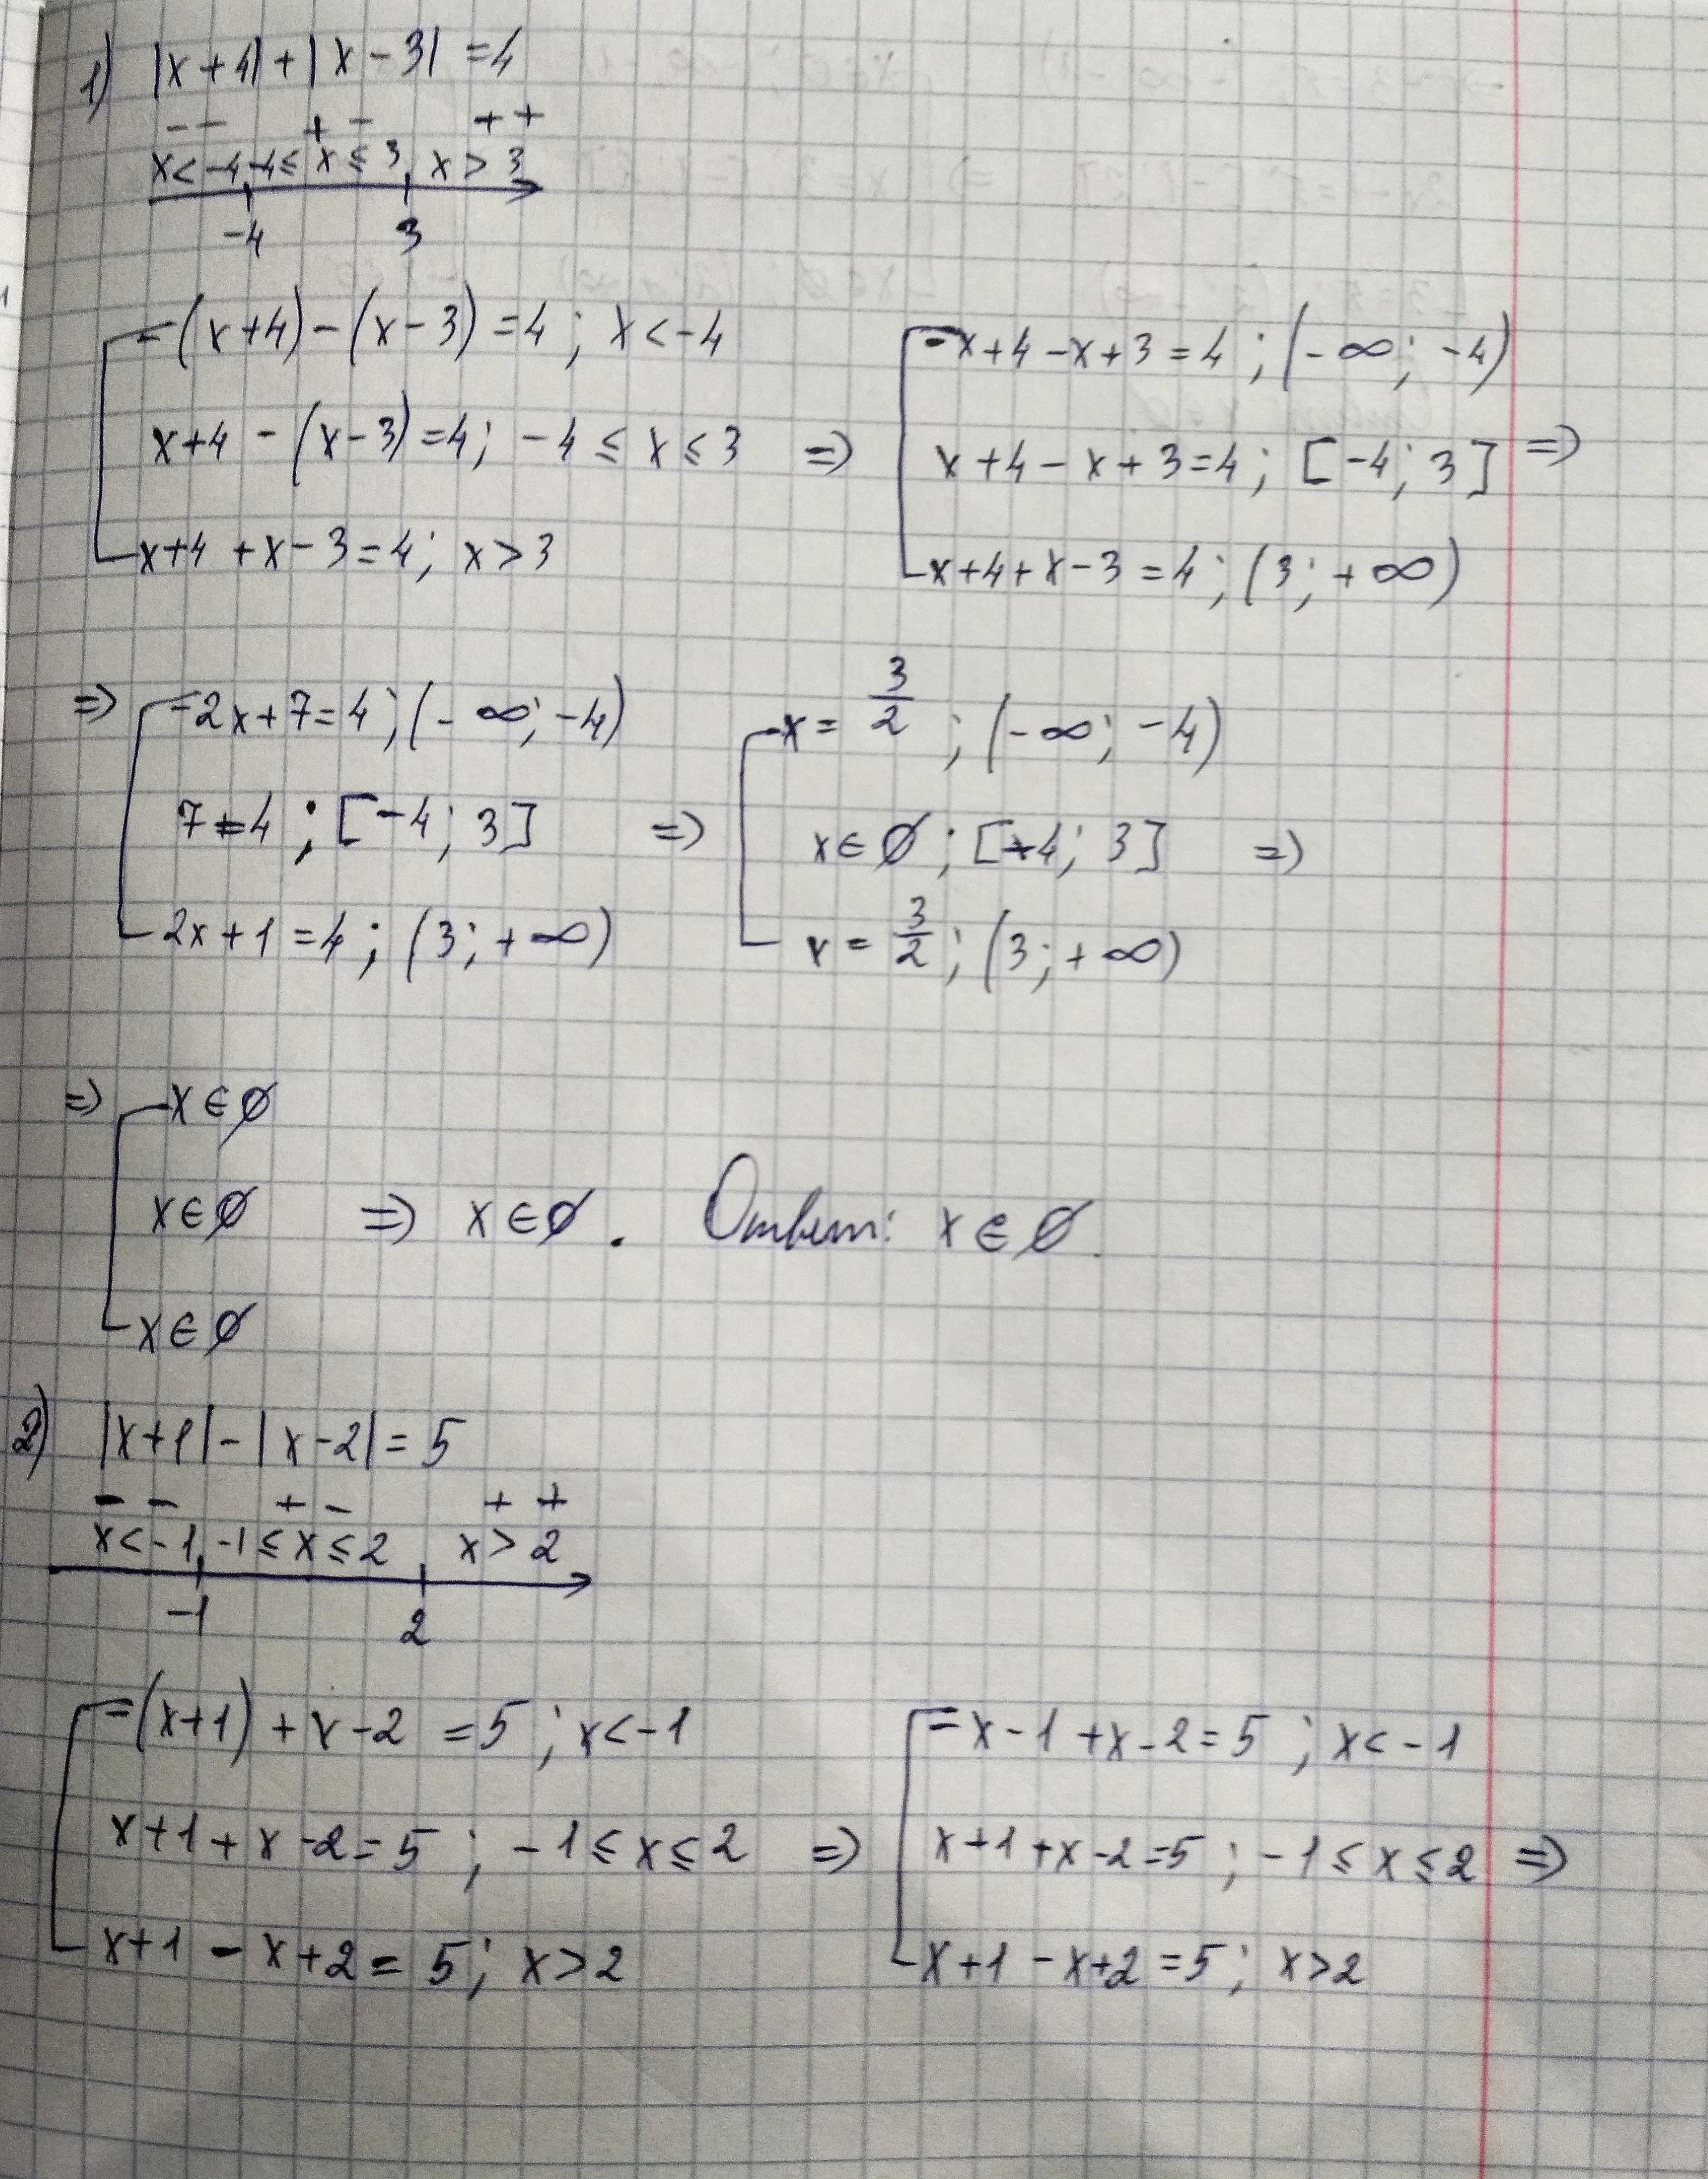 1) |x+4|+|x-3|=4
- - + - + +
x<-4 -4≤x≤3, x>3
-4 3
-(x+4)-(x-3)=4; x<-4
x+4-(x-3)=4; -4≤x≤3 =>
x+4+x-3=4; x>3
-x+4-x+3=4; (-∞; -4)
x+4-x+3=4; [-4; 3] =>
x+4+x-3=4; (3; +∞)
=> -2x+7=4; (-∞; -4)
7≠4; [-4; 3] =>
2x+1=4; (3; +∞)
x=3/2; (-∞; -4)
x∈∅; [-4; 3] =>
x=3/2; (3; +∞)
=> x∈∅
x∈∅ => x∈∅. Ответ: x∈∅.
x∈∅
2) |x+1|-|x-2|=5
- - + - + +
x<-1, -1≤x≤2, x>2
-1 2
-(x+1)+x-2=5; x<-1
x+1+x-2=5; -1≤x≤2 =>
x+1-x+2=5; x>2
-x-1+x-2=5; x<-1
x+1+x-2=5; -1≤x≤2 =>
x+1-x+2=5; x>2